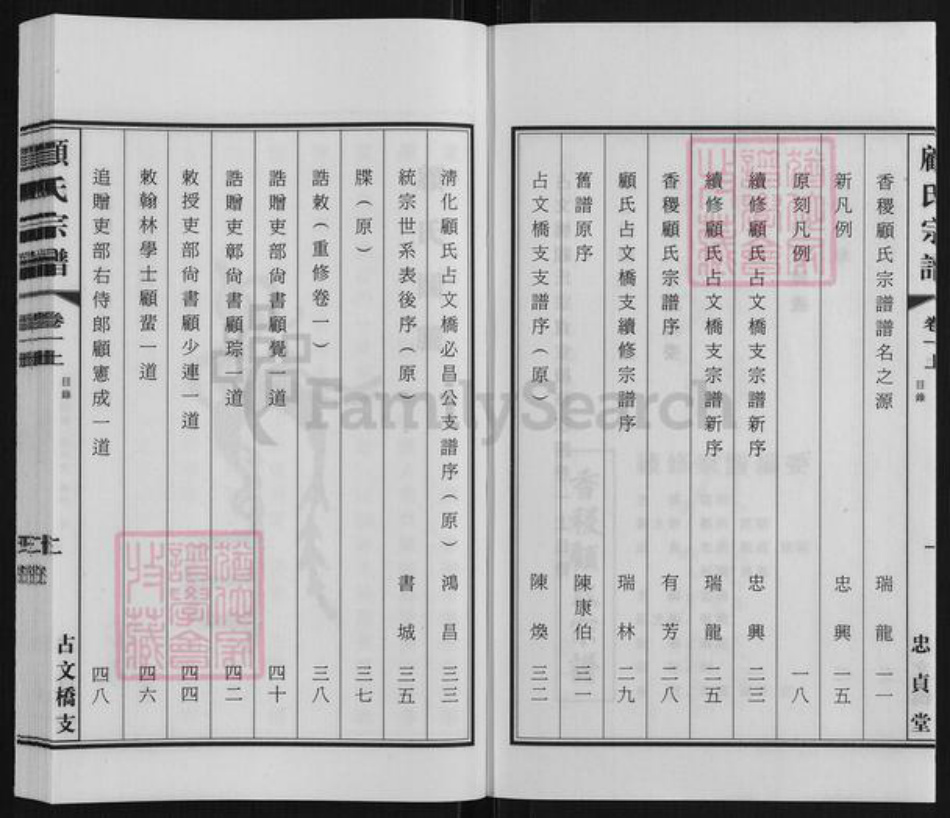 顧氏宗譜
卷一上
目錄
一
忠貞堂
香稷顧氏宗譜譜名之源 瑞龍 一一
新凡例 忠興 一五
原刻凡例 一八
續修顧氏占文橋支宗譜新序 忠興 二三
續修顧氏占文橋支宗譜新序 瑞龍 二五
香稷顧氏宗譜序 有芳 二八
顧氏占文橋支續修宗譜序 瑞林 二九
舊譜原序 陳康伯 三一
占文橋支支譜序（原） 陳煥 三二
清化顧氏占文橋必昌公支譜序（原） 鴻昌 三三
統宗世系表後序（原） 書城 三五
牒（原） 三七
誥敕（重修卷一） 三八
誥贈吏部尚書顧覺一道 四十
誥贈吏部尚書顧琮一道 四二
敕授吏部尚書顧少連一道 四四
敕翰林學士顧蜚一道 四六
追贈吏部右侍郎顧憲成一道 四八
顧氏宗譜
卷一上
目錄
占文橋支
FamilySearch